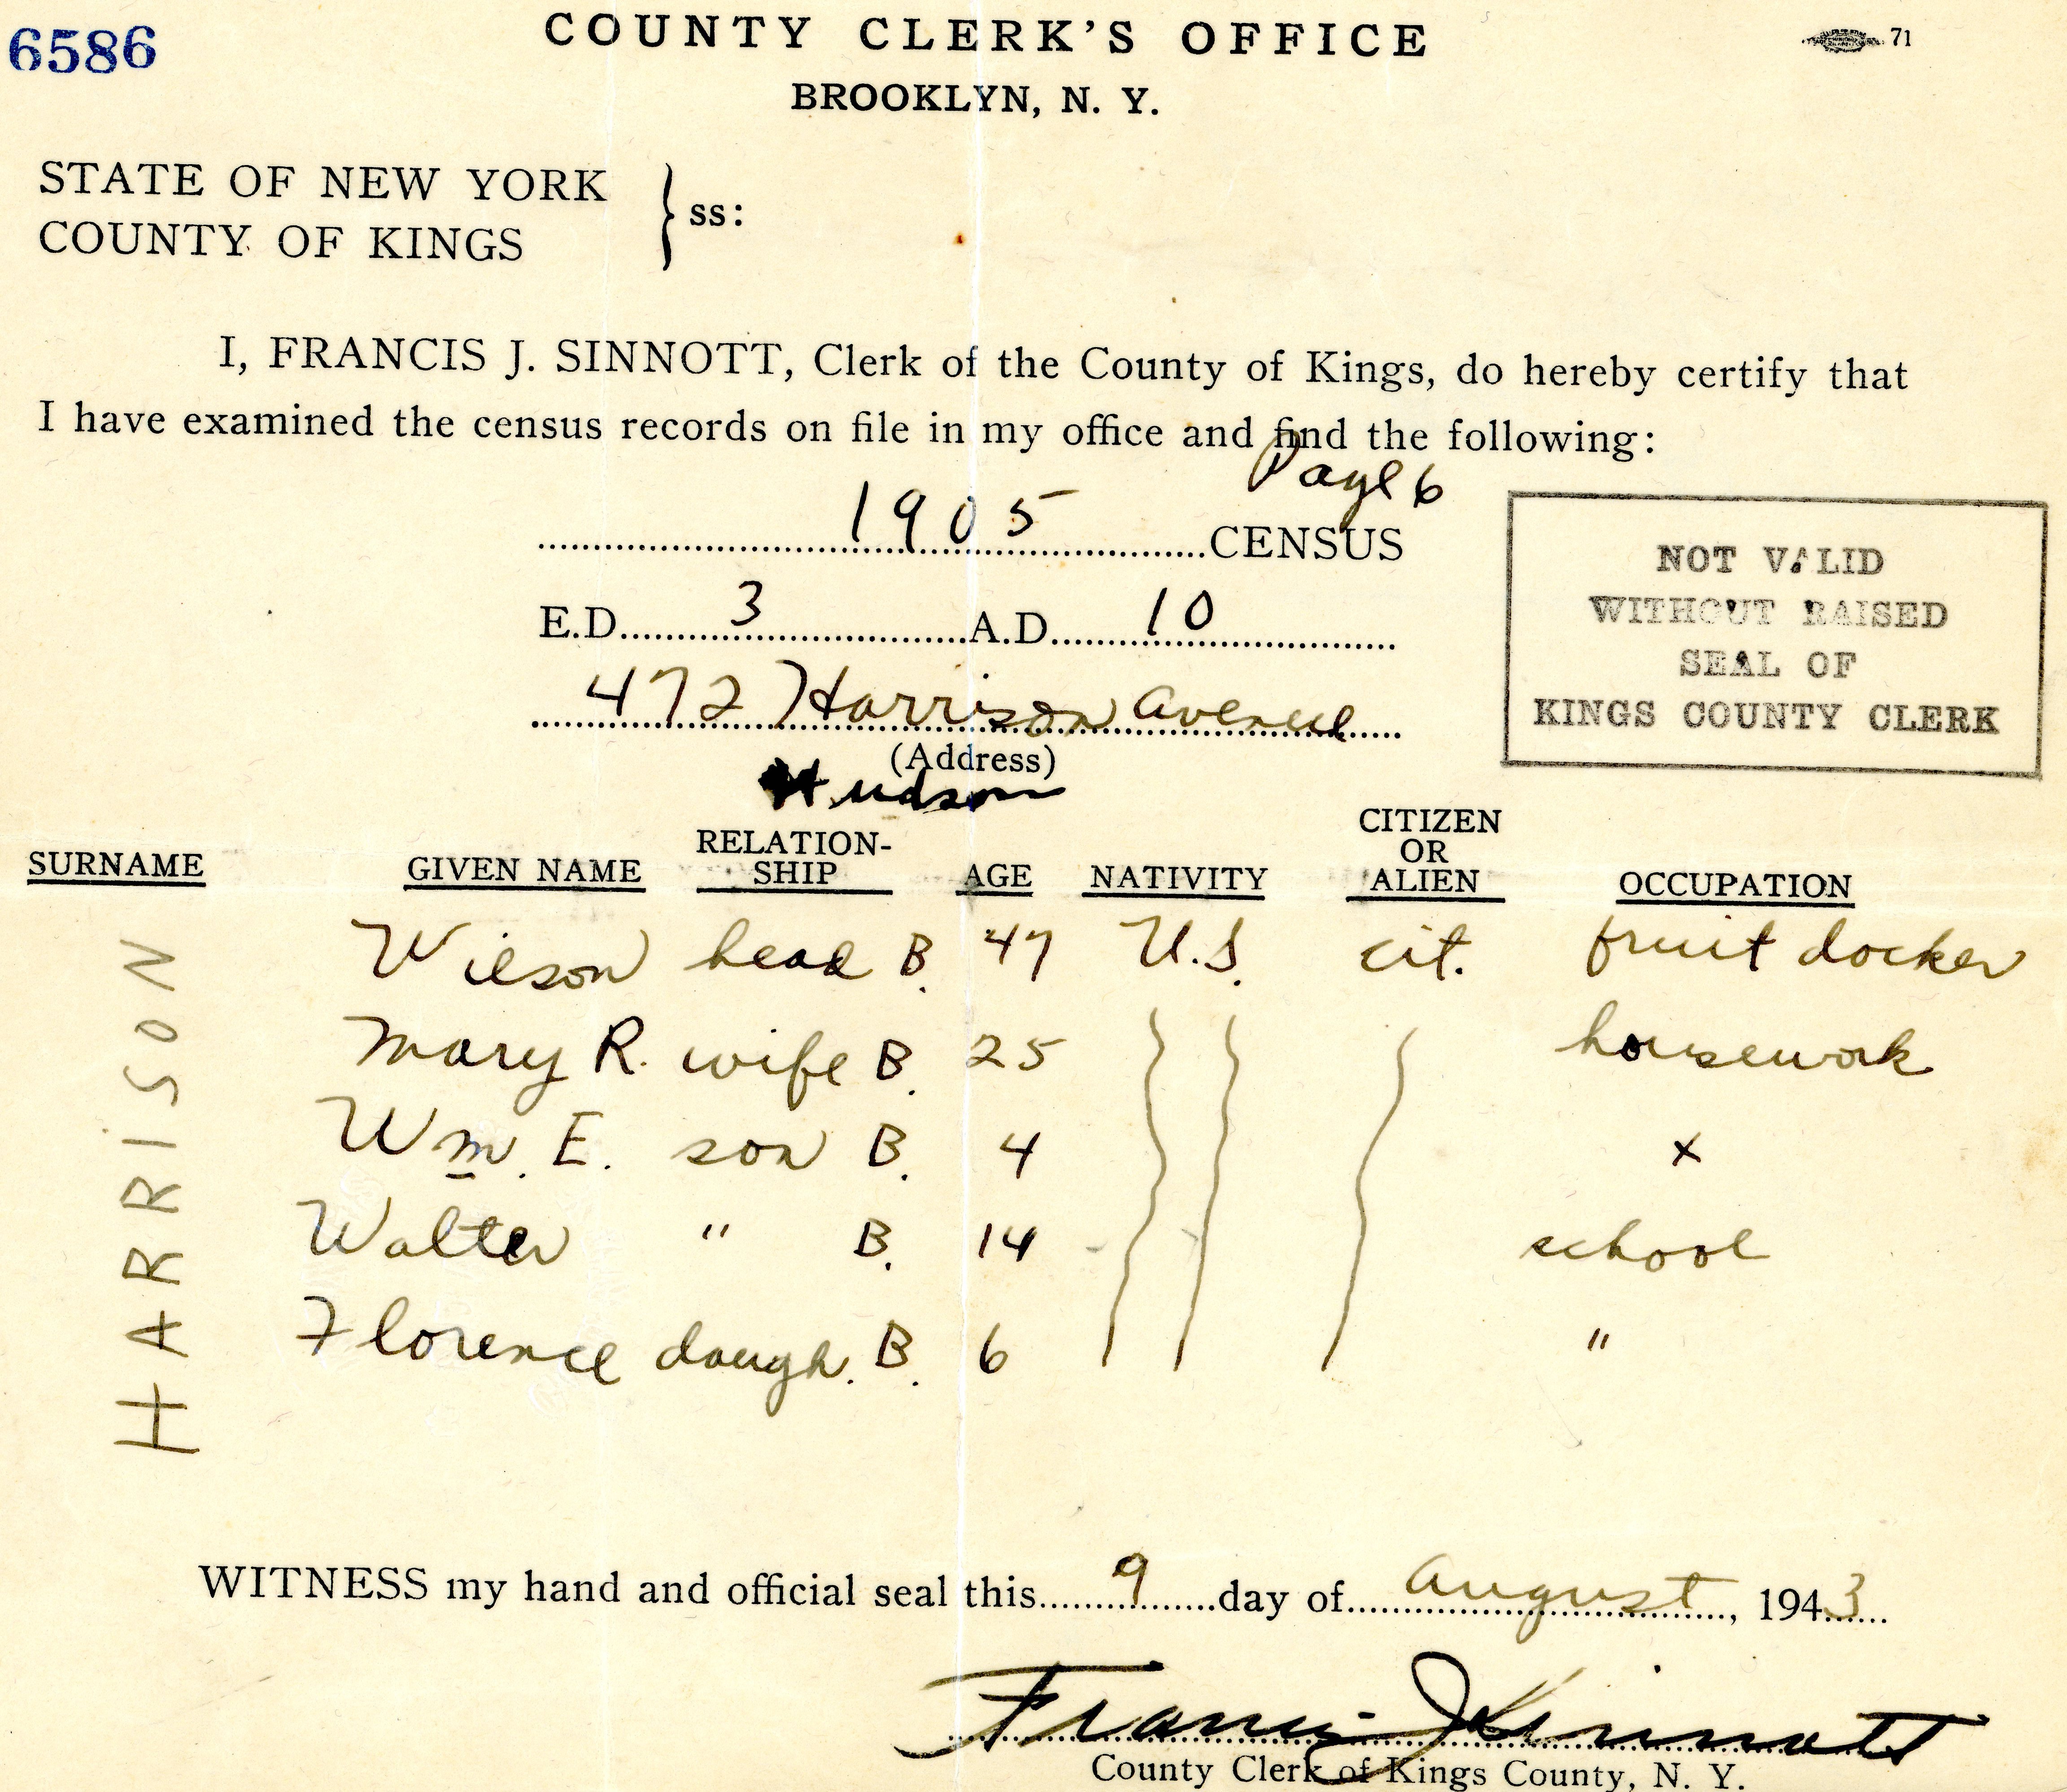 6586
COUNTY CLERK'S OFFICE
71
BROOKLYN, N. Y.
STATE OF NEW YORK
COUNTY OF KINGS
ss:
I, FRANCIS J. SINNOTT, Clerk of the County of Kings, do hereby certify that
I have examined the census records on file in my office and find the following:
Page 6
1905 CENSUS
E.D. 3 A.D. 10
472 Harrison Avenue
(Address)
Hudson
NOT VALID
WITHOUT RAISED
SEAL OF
KINGS COUNTY CLERK
SURNAME GIVEN NAME RELATION-SHIP AGE NATIVITY CITIZEN OR ALIEN OCCUPATION
HARRISON
Wilson head B. 47 U.S. cit. fruit docker
Mary R. wife B. 25 housework
Wm. E. son B. 4 x
Walter " B. 14 school
Florence daugh. B. 6 "
WITNESS my hand and official seal this 9 day of August, 1943
Francis J Sinnott
County Clerk of Kings County, N. Y.